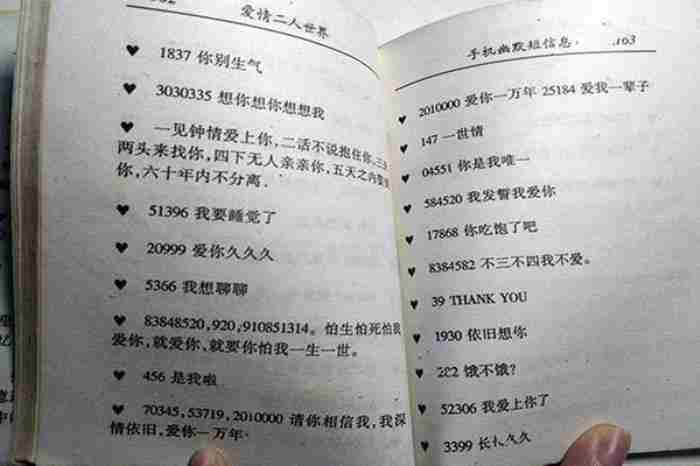 爱情二人世界
♥ 1837 你别生气
♥ 3030335 想你想你想想我
♥ 一见钟情爱上你,二话不说抱住你,三
两头来找你,四下无人亲亲你,五天之内
你,六十年内不分离.
♥ 51396 我要睡觉了
♥ 20999 爱你久久久
♥ 5366 我想聊聊
♥ 83848520,920,910851314。怕生怕死怕我
爱你,就爱你、就要你怕我一生一世。
♥ 456 是我啦
♥ 70345,53719,2010000 请你相信我,我深
情依旧,爱你一万年·
手机幽默短信息 163
♥ 2010000 爱你一万年 25184 爱我一辈子
♥ 147 一世情
♥ 04551 你是我唯一
♥ 584520 我发誓我爱你
♥ 17868 你吃饱了吧
♥ 8384582 不三不四我不爱。
♥ 39 THANK YOU
♥ 1930 依旧想你
♥ 282 饿不饿?
♥ 52306 我爱上你了
♥ 3399 长长久久